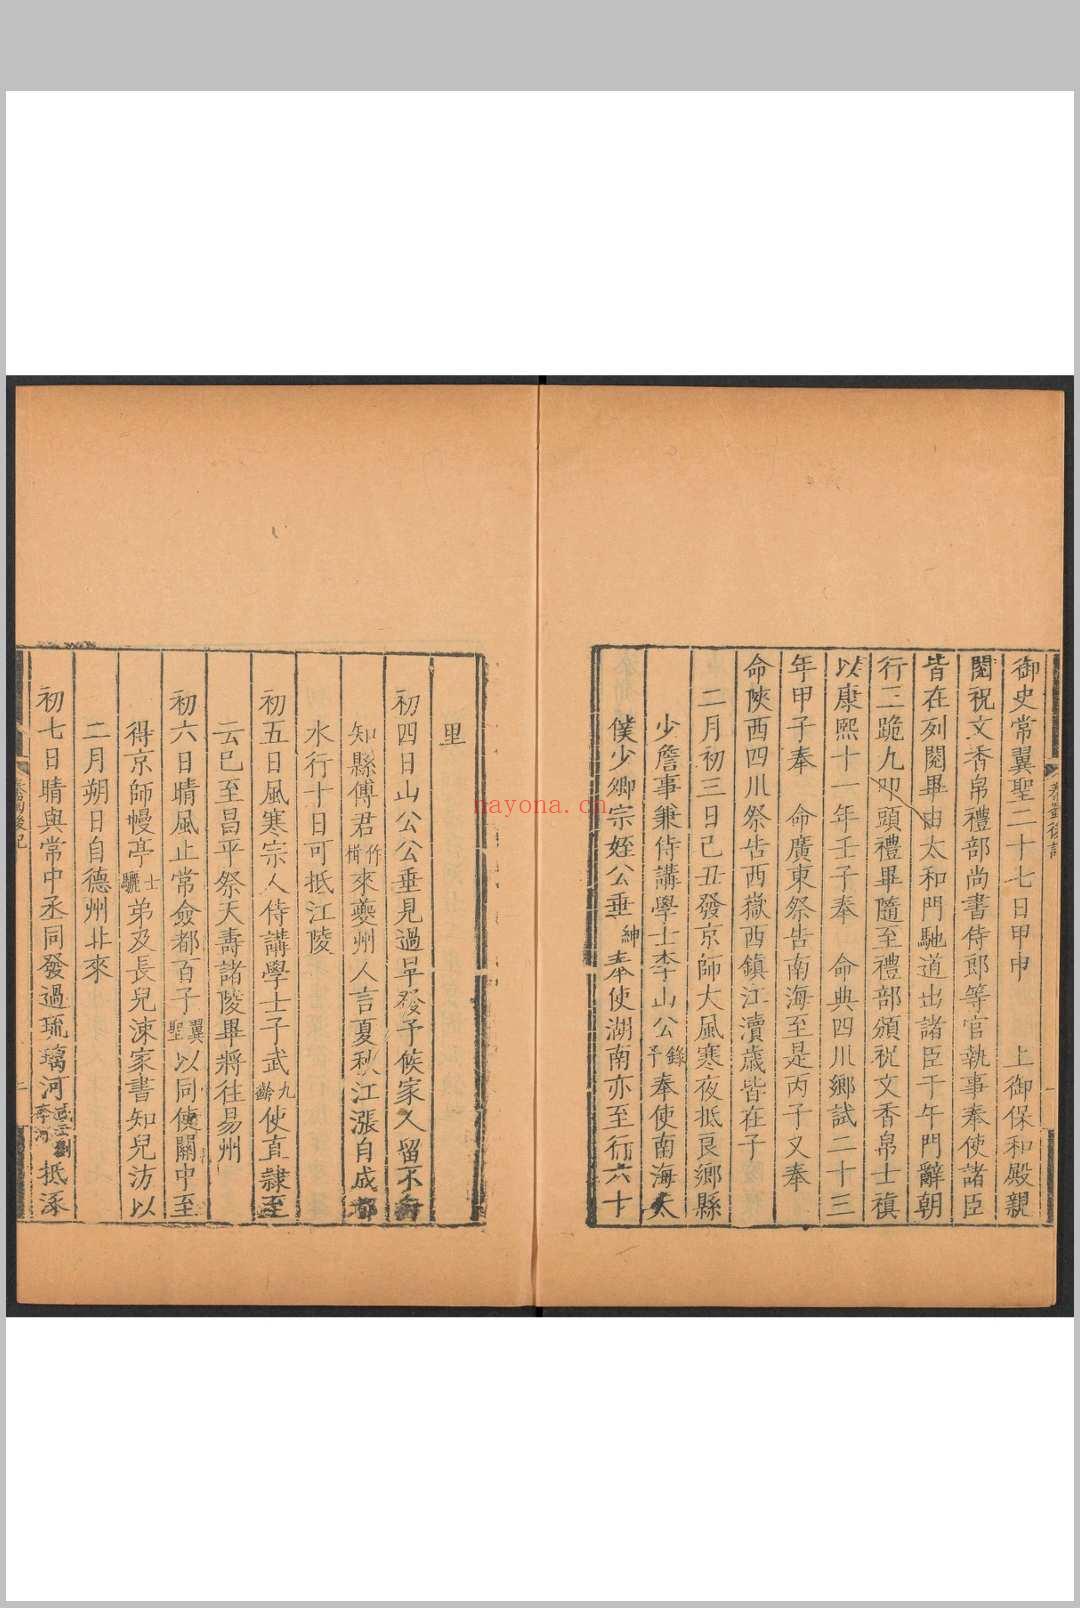 御史常翼聖二十七日甲申　上御保和殿親
閱祝文香帛禮部尚書侍郎等官執事奉使諸臣
皆在列閱畢由太和門馳道出諸臣于午門辭朝
行三跪九叩頭禮畢隨至禮部頒祝文香帛士禛
以康熙十一年壬子奉　命典四川鄉試二十三
年甲子奉　命廣東祭告南海至是丙子又奉
命陝西四川祭告西嶽西鎮江瀆歲皆在子
二月初三日己丑發京師大風寒夜抵良鄉縣
少詹事兼侍講學士李山公錄予奉使南海太
僕少卿宗姪公垂紳奉使湖南亦至行六十
里
初四日山公公垂見過早發予候家人留不
知縣傅君作楫來夔州人言夏秋江漲自成都
水行十日可抵江陵
初五日風寒宗人侍講學士子武九齡使直隸至
云已至昌平祭天壽諸陵畢將往易州
初六日晴風止常僉都百子翼聖以同使關中至
得京師幔亭士驪弟及長兒涑家書知兒汸以
二月朔日自德州北來
初七日晴與常中丞同發過琉璃河抵涿
秦蜀後記
秦蜀後記
nayona.cn